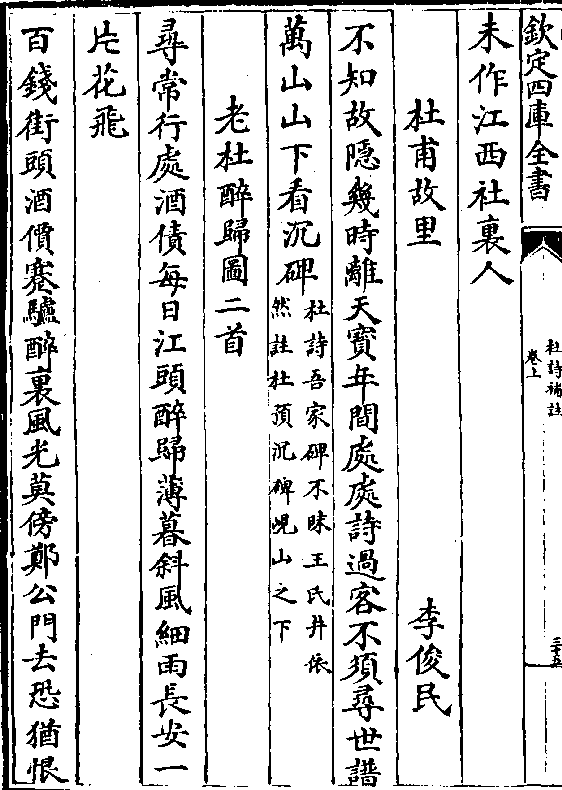 欽定四庫全書
杜詩補註
卷上
三十五
未作江西社裏人
杜甫故里
李俊民
不知故隱幾時離天寳年間處處詩過客不須尋世譜
萬山山下看沉碑
杜詩吾家碑不昧王氏井依
然註杜預沉碑峴山之下
老杜醉歸圖二首
尋常行處酒債每日江頭醉歸薄暮斜風細雨長安一
片花飛
百錢街頭酒價蹇驢醉裏風光莫傍鄭公門去恐猶恨